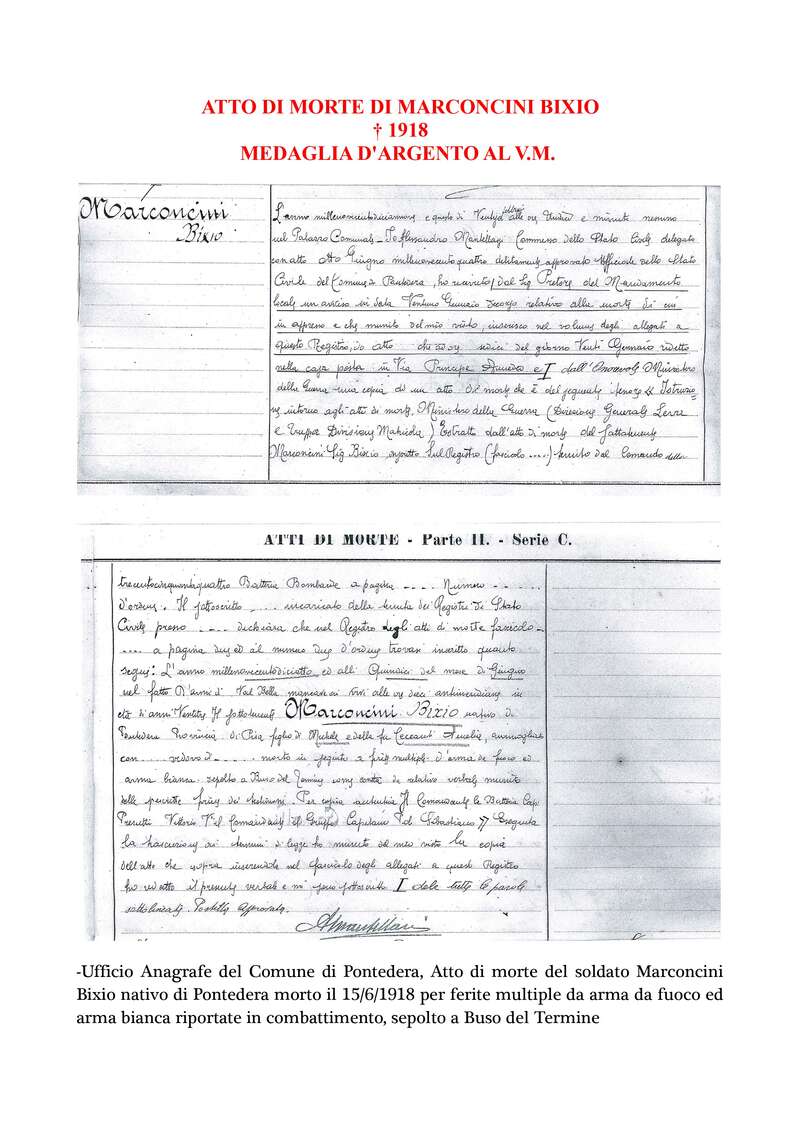 ATTO DI MORTE DI MARCONCINI BIXIO
† 1918
MEDAGLIA D'ARGENTO AL V.M.
Marconcini
Bixio
L'anno millenovecentodiciannove e questo dì Ventijé alle ore Undici e minuti nessuno
nel Palazzo Comunale - Io Alessandro Mantellassi Commesso dello Stato Civile delegato
con atto Otto Giugno millenovecentoquattro debitamente approvato Ufficiale dello Stato
Civile del Comune di Pontedera, ho ricevuto dal Sig Pretore del Mandamento
locale un avviso in data Ventuno Gennaio scorso relativo alla morte di cui
in appresso e che munito del mio visto, inserisco nel volume degli allegati a
questo Registro, do atto che ore sedici del giorno Venti Gennaio
nella casa posta in Via Principe Amedeo e I dall'Onorevole Ministero
della Guerra una copia di un atto di morte che è del seguente tenore « Istruzio
ne intorno agli atti di morte. Ministero della Guerra (Divisione Generale Leva
e Truppa Divisione Matricola) Estratto dall'atto di morte del
Marconcini Sig Bixio, inscritto sul Registro (fascicolo .....) tenuto dal Comando della
ATTI DI MORTE - Parte II. - Serie C.
trecentocinquantaquattro Batteria Bombarde a pagina .... Numero ....
d'ordine. Il sottoscritto .... incaricato della tenuta dei Registri di Stato
Civile presso .... dichiara che nel Registro degli atti di morte fascicolo -
.... a pagina due ed al numero due d'ordine trovasi inscritto quanto
segue: L'anno millenovecentodiciotto ed alli Quindici del mese di Giugno
nel fatto d'armi di Val Bella mancava ai vivi alle ore dieci antimeridiane in
età di anni Ventitre Il Marconcini Bixio nativo di
Pontedera Provincia di Pisa figlio di Michele e della fu Ceccanti Amelia, ammogliato
con .... vedovo di .... morto in seguito a ferite multiple d'arma da fuoco ed
arma bianca sepolto a Buso del Termine come consta da relativo verbale munito
delle prescritte firme dei testimoni. Per copia autentica Il Comandante la Batteria Cap
Vittorio Il Comandante il Gruppo Capitano Sebastiano » Eseguita
la trascrizione ai termini di legge ho munito del mio visto la copia
dell'atto che sopra inserendola nel fascicolo degli allegati a questo Registro
ho redatto il presente verbale e mi sono sottoscritto I dele tutte le parole
sottolineate. Postilla approvata.
AMantellassi
-Ufficio Anagrafe del Comune di Pontedera, Atto di morte del soldato Marconcini
Bixio nativo di Pontedera morto il 15/6/1918 per ferite multiple da arma da fuoco ed
arma bianca riportate in combattimento, sepolto a Buso del Termine